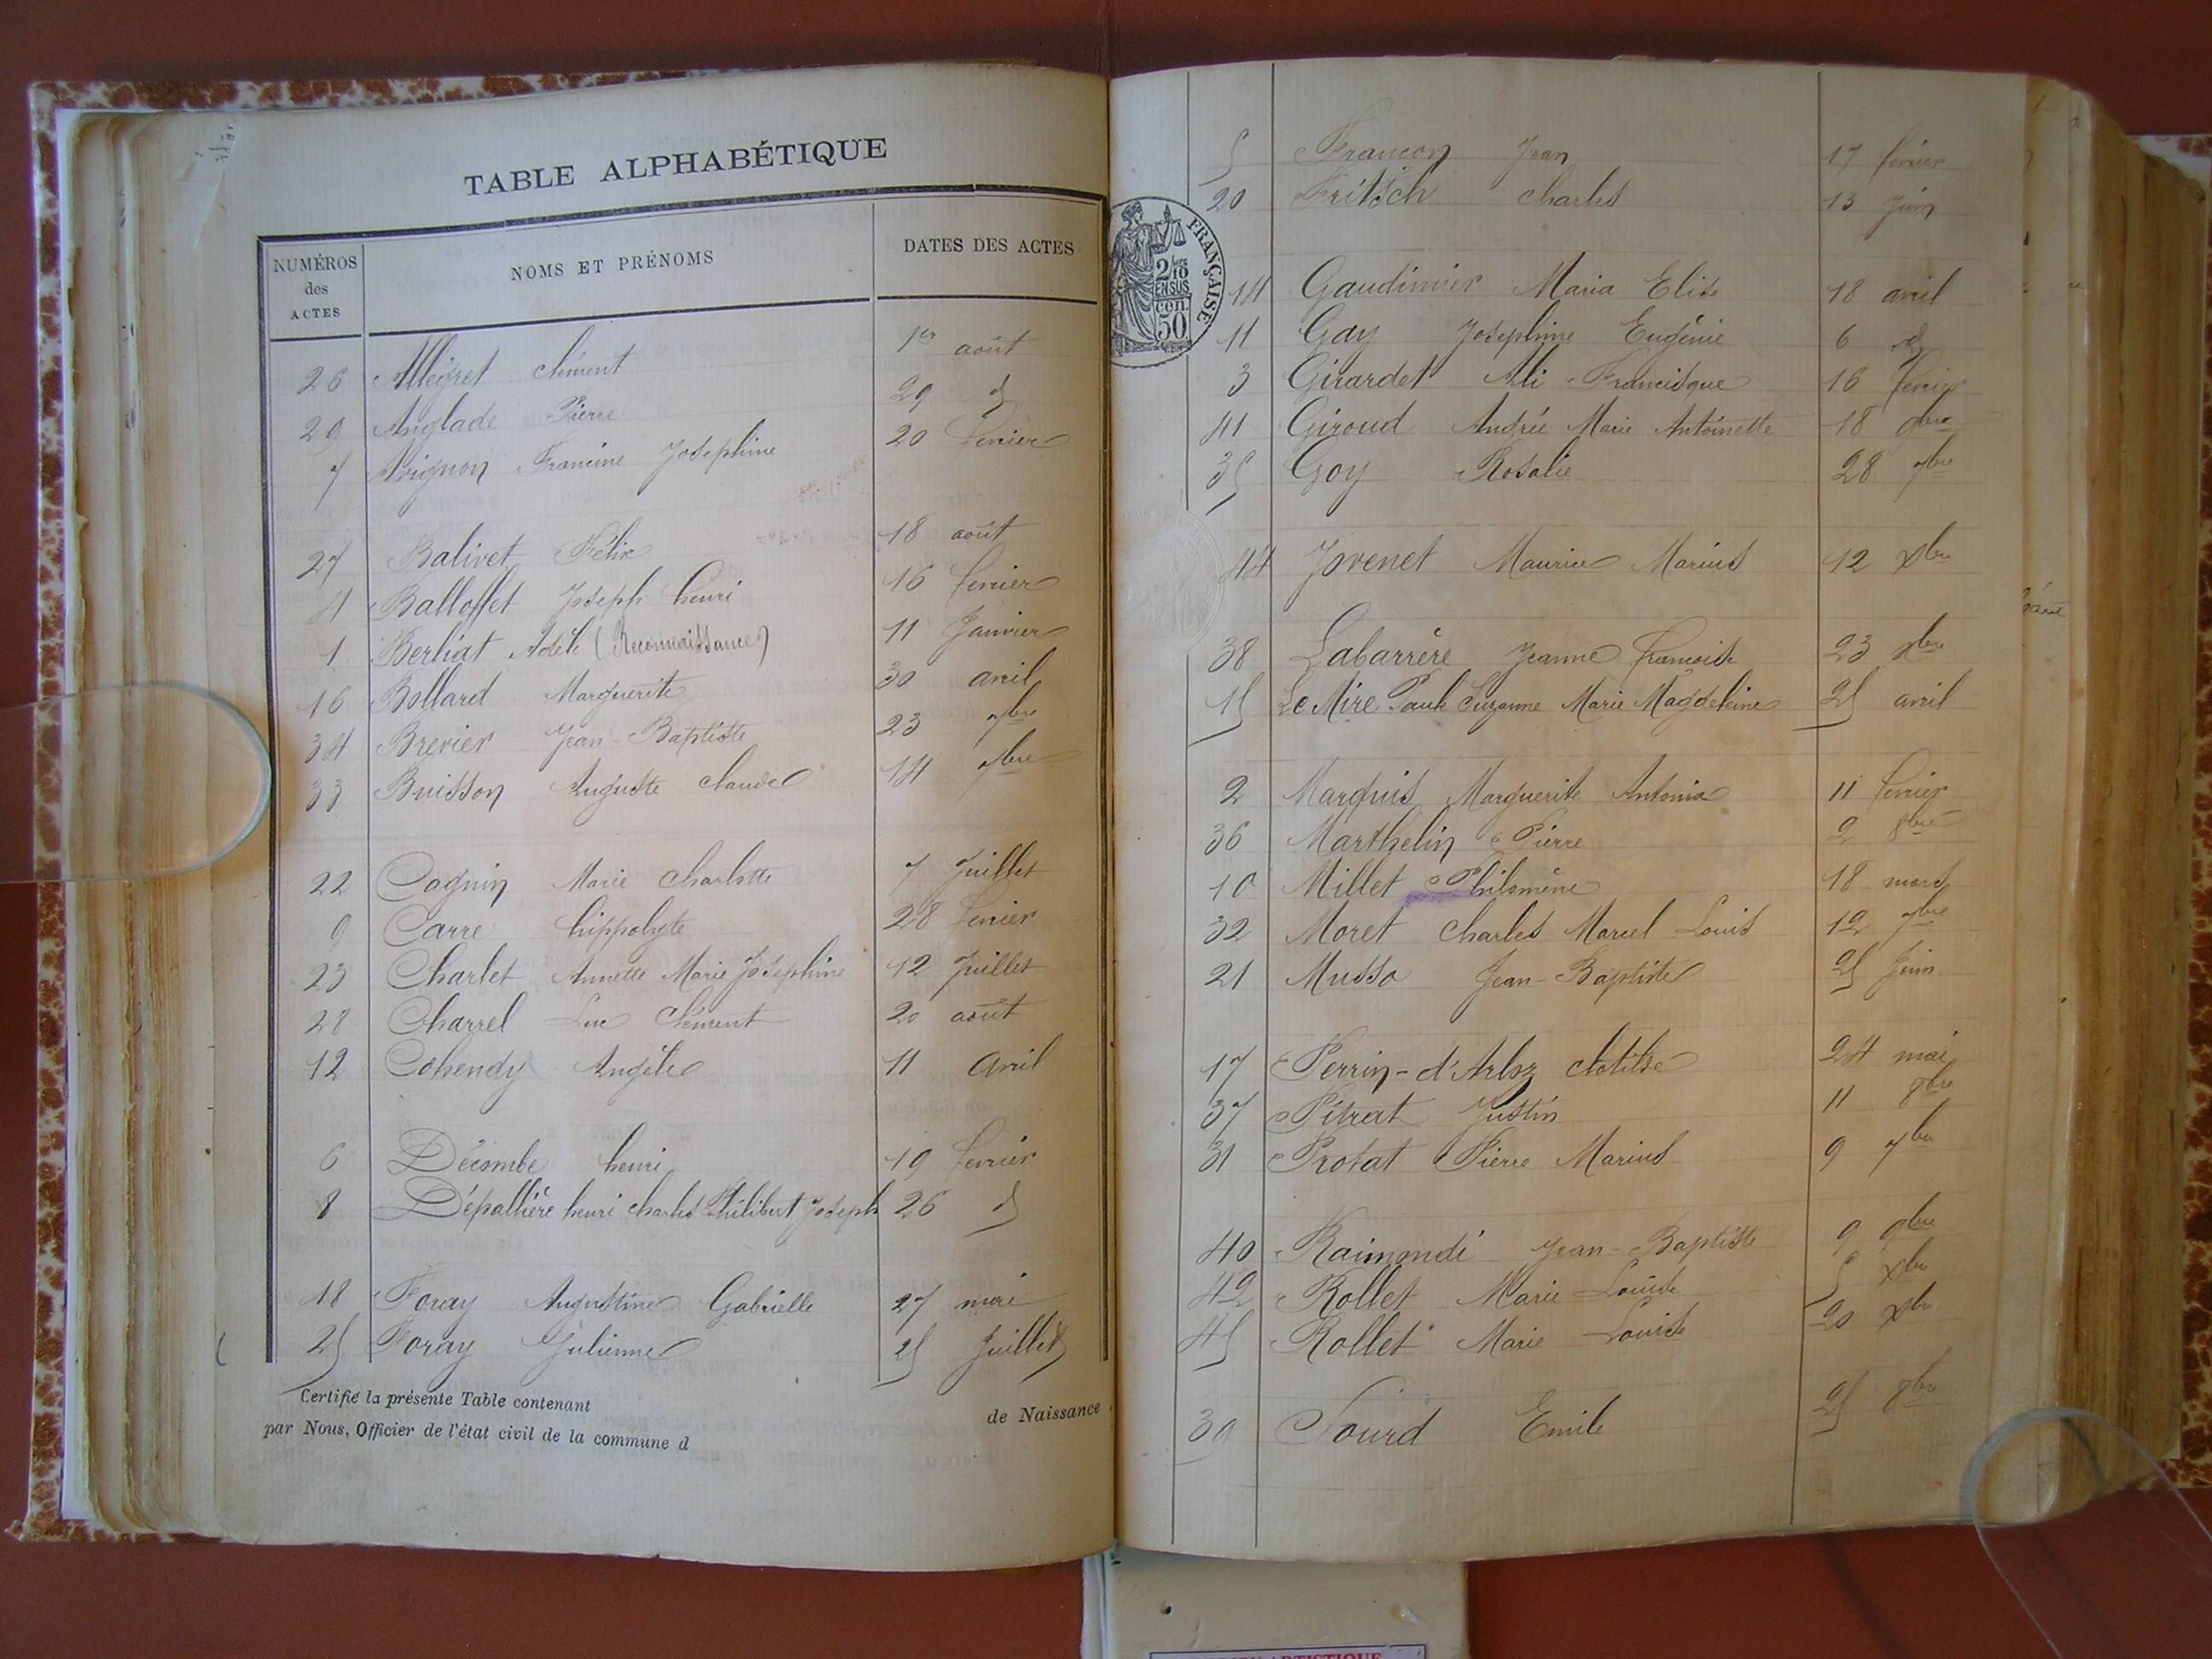 TABLE ALPHABÉTIQUE
NUMÉROS des ACTES NOMS ET PRÉNOMS DATES DES ACTES
26 Allégret Clément 1er août
29 Anglade Pierre 29 d
7 Avignon Francine Joséphine 20 fevrier
27 Balivet Félix 18 août
4 Balloffet Joseph henri 16 fevrier
1 Berliat Adèle (Reconnaissance) 11 Janvier
16 Bollard Marguerite 30 avril
34 Brevier Jean-Baptiste 23 7bre
33 Buisson Auguste Claude 14 7bre
22 Cagnin Marie Charlotte 7 Juillet
9 Carre hippolyte 28 fevrier
23 Charlet Annette Marie Joséphine 12 Juillet
28 Charrel Luc Clément 20 août
12 Cohendy Angèle 11 Avril
6 Décombe henri 19 fevrier
8 Dépallière henri Charles Philibert Joseph 26 d
18 Foray Augustine Gabrielle 27 mai
25 Foray Julienne 25 Juillet
Certifié la présente Table contenant de Naissance
par Nous, Officier de l'état civil de la commune d
5 Françon Jean 17 fevrier
20 Fritsch Charles 13 Juin
FRANÇAISE
2/10 EN SUS
50 cen.
14 Gaudinier Maria Elise 18 avril
11 Gay Joséphine Eugénie 6 d
3 Girardet Ali Francisque 16 fevrier
41 Giroud Andrée Marie Antoinette 18 9bre
35 Goy Rosalie 28 7bre
44 Jovenet Maurice Marius 12 Xbre
38 Labarrère Jeanne Françoise 23 8bre
15 Le Mire Paule Suzanne Marie Magdeleine 25 avril
2 Marquis Marguerite Antonia 11 fevrier
36 Marthelin Pierre 2 8bre
10 Millet Philomène 18 mars
32 Moret Charles Marcel Louis 12 7bre
21 Musso Jean-Baptiste 25 Juin
17 Perrin-d'Arloz Clotilde 24 mai
37 Pitrat Justin 11 8bre
31 Protat Pierre Marius 9 7bre
40 Raimondi Jean-Baptiste 9 9bre
42 Rollet Marie Louise 5 Xbre
45 Rollet Marie Louise 20 Xbre
39 Sourd Emile 25 8bre